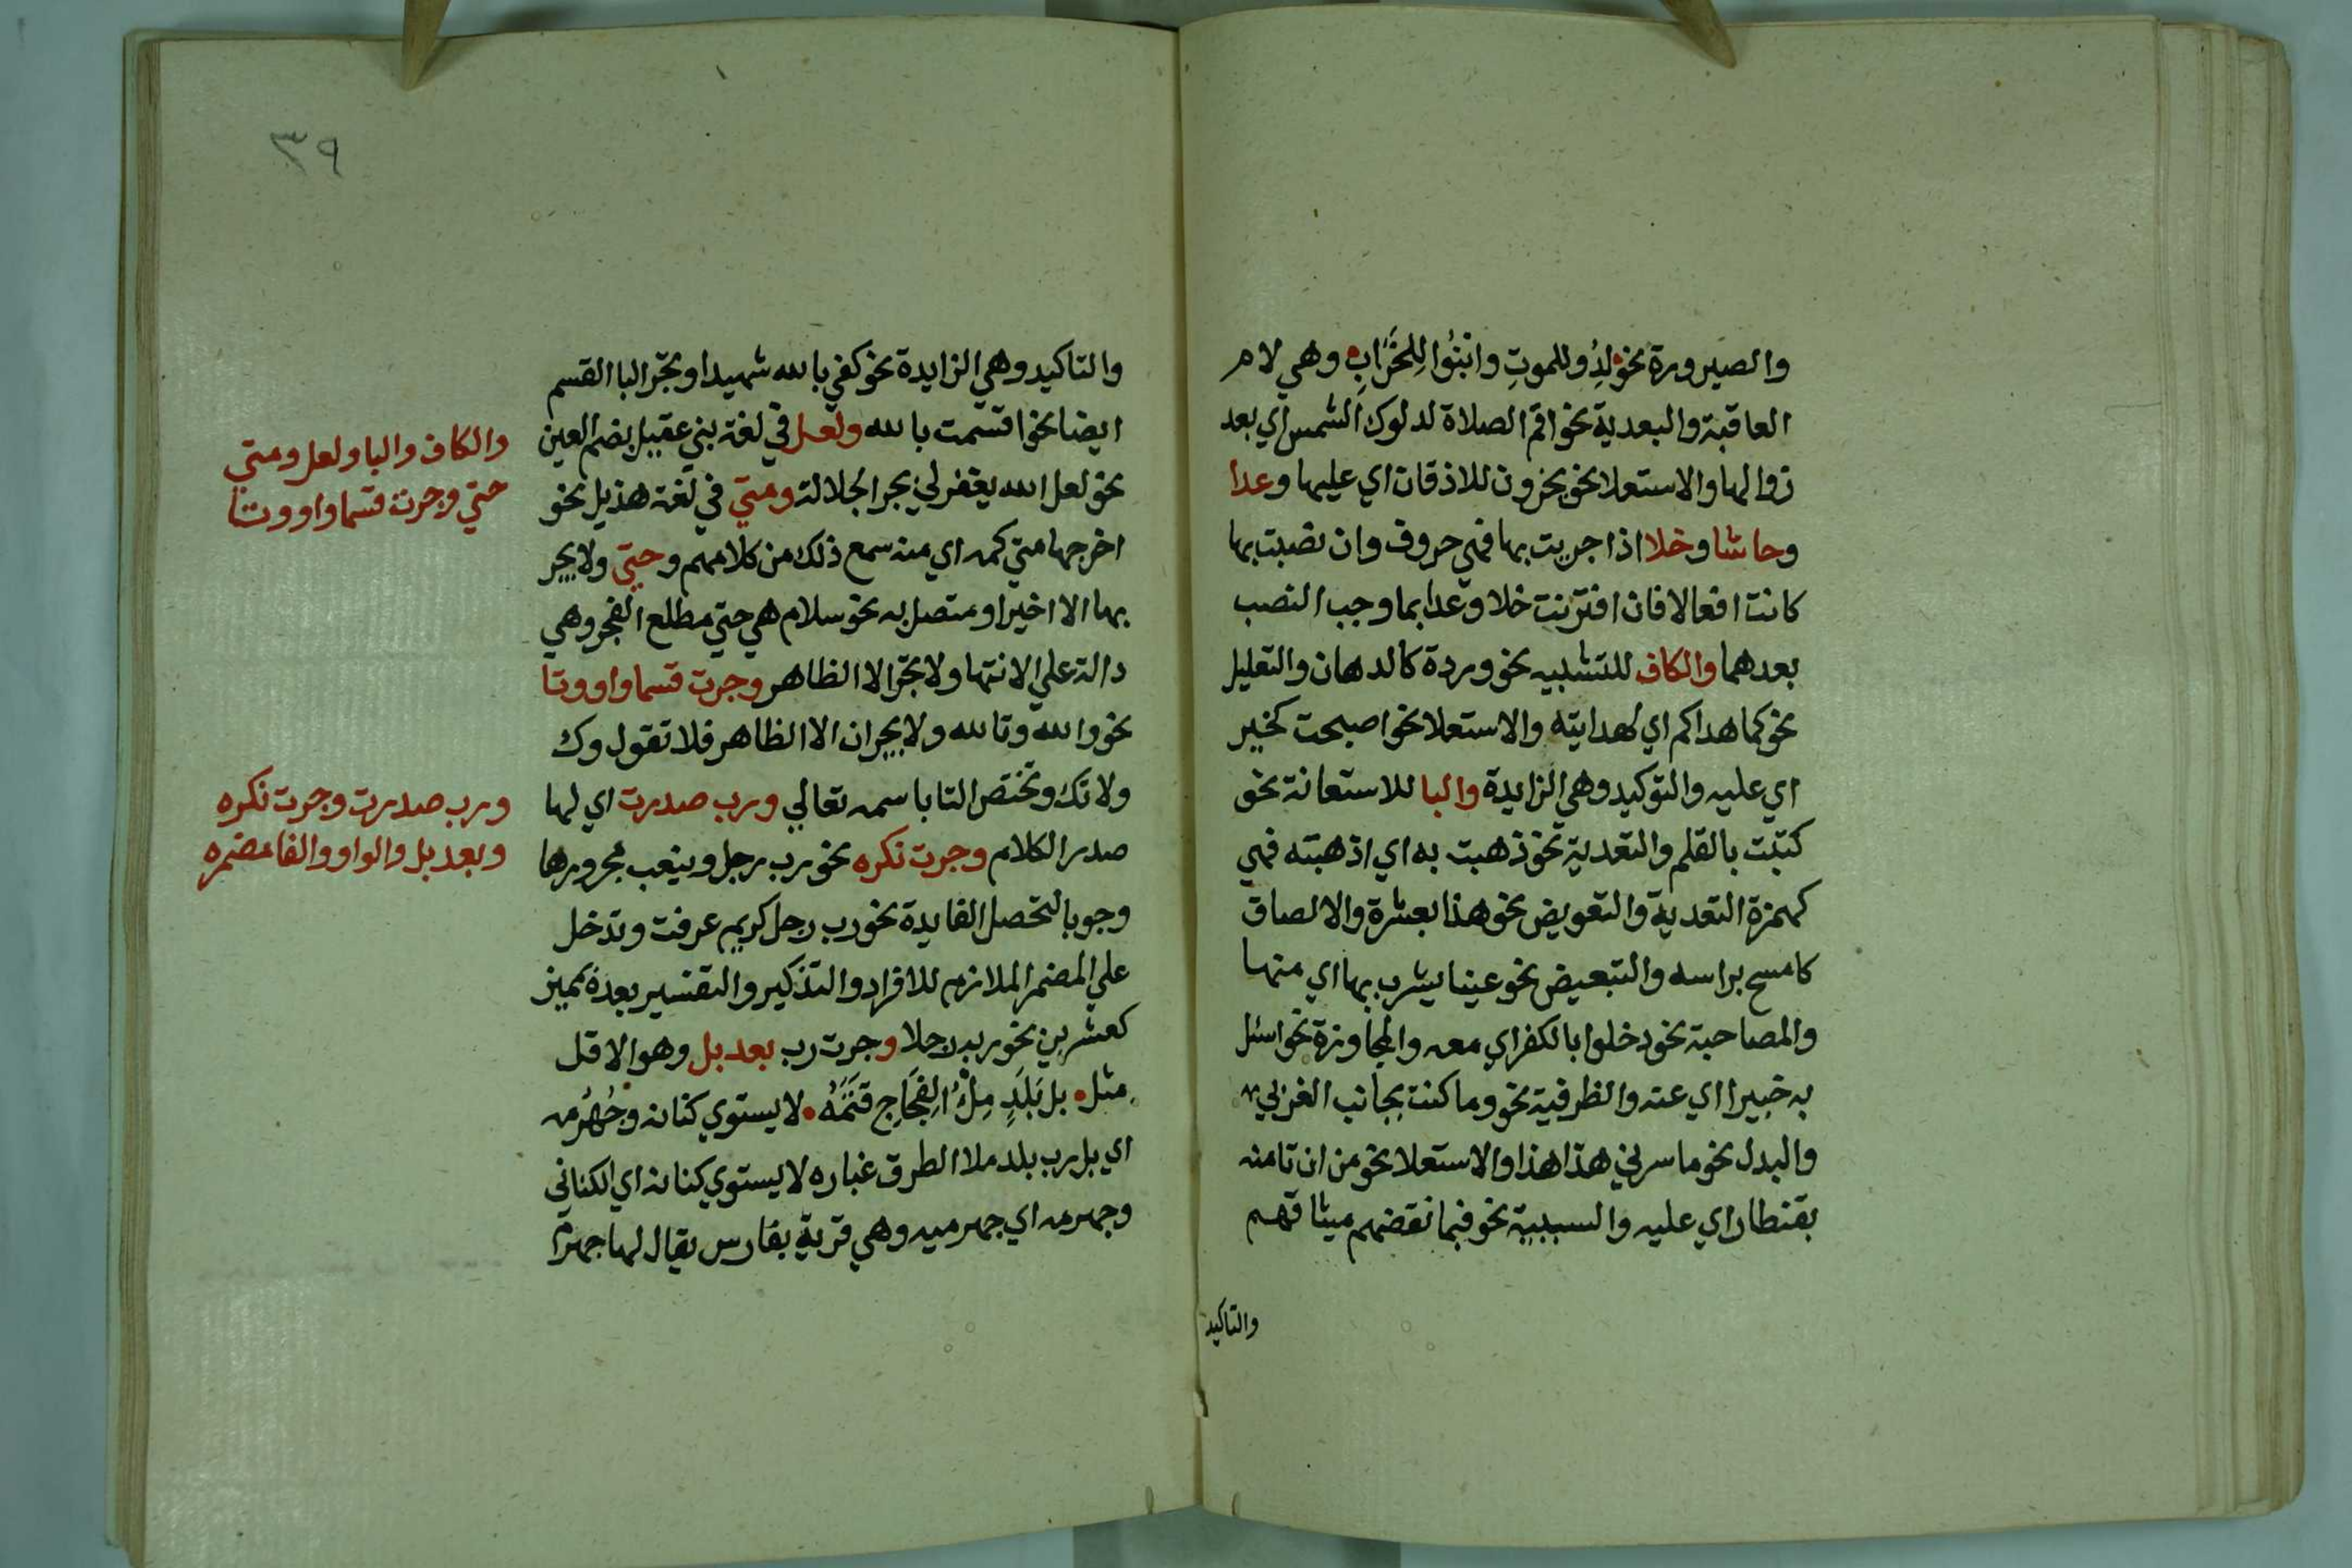 والصيرورة نحو لِدُوا للموتِ وابنُوا لِلخَرَابِ وهي لام
العاقبة والبعدية نحو اقم الصلاة لدلوك الشمس اي بعد
زوالها والاستعلا نحو يخرون للاذقان اي عليها وعدا
وحاشا وخلا اذا جريت بها فهي حروف وان نصبت بها
كانت افعالا فان اقترنت خلا وعدا بما وجب النصب
بعدهما والكاف للتشبيه نحو وردة كالدهان والتعليل
نحو كما هداكم اي لهدايته والاستعلا نحو اصبحت كخير
اي عليه والتوكيد وهي الزايدة والبا للاستعانة نحو
كتبت بالقلم والتعدية نحو ذهبت به اي اذهبته فهي
كهمزة التعدية والتعويض نحو هذا بعشرة والالصاق
كامسح براسه والتبعيض نحو عينا يشرب بها اي منها
والمصاحبة نحو دخلوا بالكفر اي معه والمجاوزة نحو اسئل
به خبيرا اي عنه والظرفية نحو وما كنت بجانب الغربي
والبدل نحو ما سرني هذا هذا والاستعلا نحو من ان تامنه
بقنطار اي عليه والسببية نحو فبما نقضهم ميثاقهم
والتاكيد
٣٩
والتاكيد وهي الزايدة نحو كفي بالله شهيدا وتجر البا القسم
ايضا نحو اقسمت بالله ولعل في لغة بني عقيل بضم العين
نحو لعل الله يغفر لي بجر الجلالة ومتي في لغة هذيل نحو
اخرجها متي كمه اي منه سمع ذلك من كلامهم وحتي ولا يجر
بها الا اخيرا او متصل به نحو سلام هي حتي مطلع الفجر وهي
دالة علي الانتها ولا تجر الا الظاهر وجرت قسما واو وتا
نحو والله وتالله ولا يجران الا الظاهر فلا تقول وك
ولا تك وتختص التا باسمه تعالي ورب صدرت اي لها
صدر الكلام وجرت نكره نحو رب رجل وينعب مجرورها
وجوبا لتحصل الفايدة نحو رب رجل كريم عرفت وتدخل
علي المضمر الملازم للافراد والتذكير والتفسير بعده بمميز
كعشرين نحو ربه رجلا وجرت رب بعد بل وهو الاقل
مثل بل بَلَدٍ مِلْءُ الفِجَاجِ قَتَمُهُ لا يستوي كتانه وجُهْرُمه
اي بل رب بلد ملا الطرق غباره لا يستوي كتانه اي الكتاني
وجهرمه اي جهرميه وهي قرية بفارس يقال لها جهرم
والكاف والبا ولعل ومتي
حتي وجرت قسما واو وتا
ورب صدرت وجرت نكره
وبعد بل والواو والفا مضمره